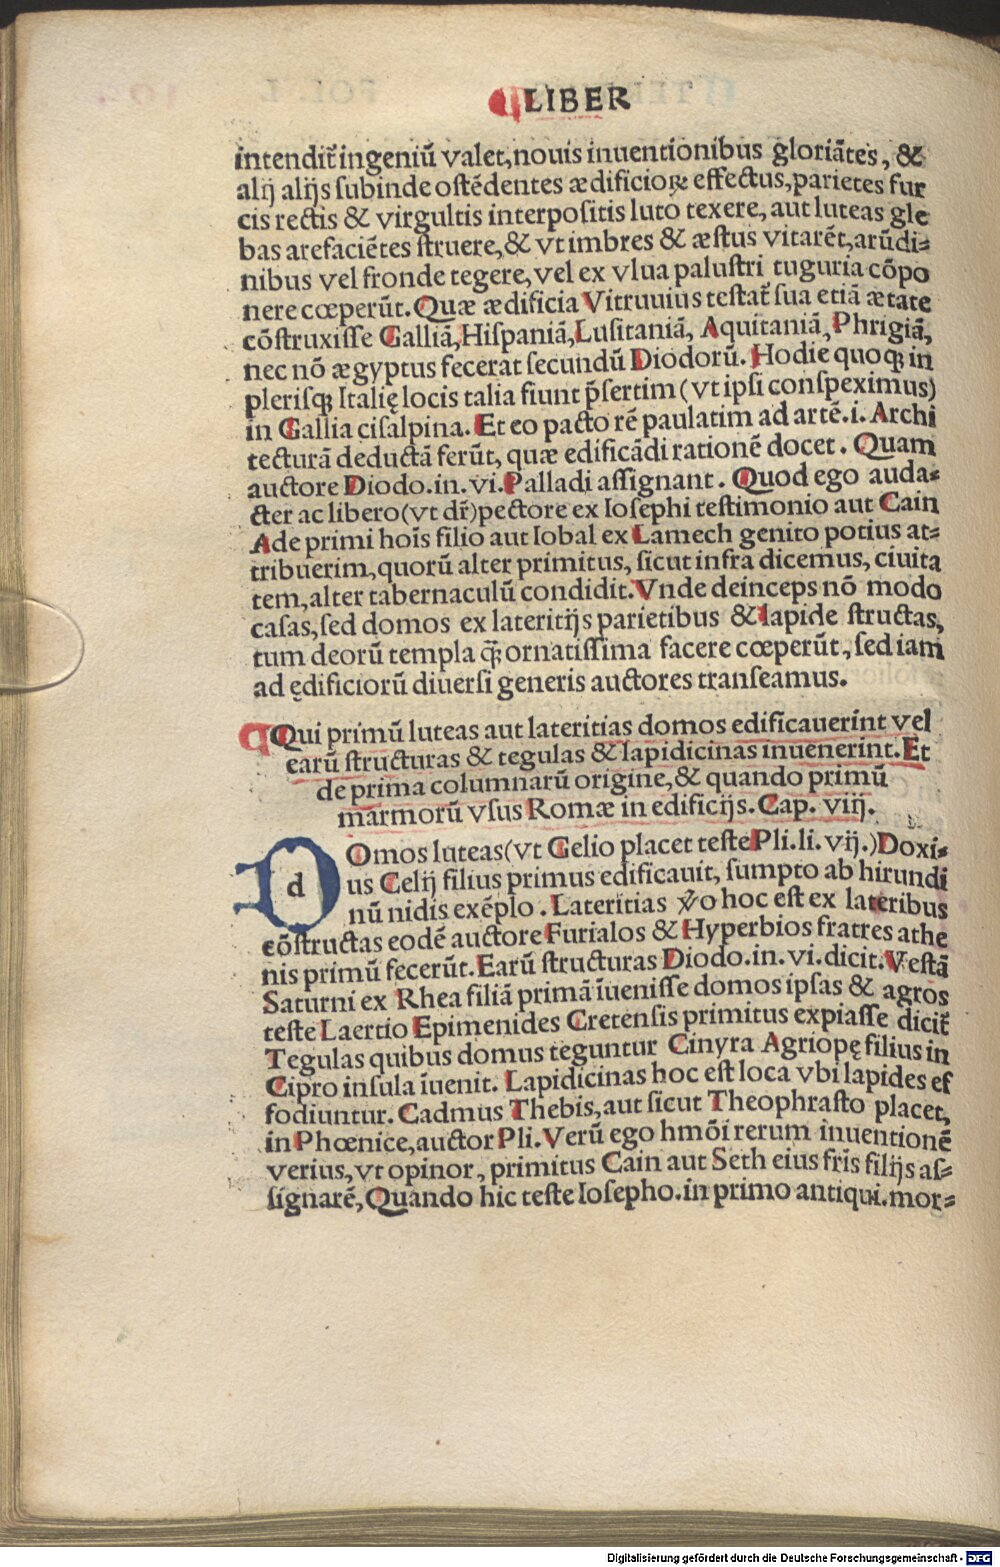 ¶LIBER
intendit᷑ ingeniū valet, nouis inuentionibus gloriātes, &
alij alijs subinde ostēdentes ædificioꝝ effectus, parietes fur
cis rectis & virgultis interpositis luto texere, aut luteas gle
bas arefaciētes struere, & vt imbres & æstus vitarēt, arūdi=
nibus vel fronde tegere, vel ex vlua palustri tuguria cōpo
nere cœperūt. Quæ ædificia Vitruuius testat᷑ sua etiā ætate
cōstruxisse Galliā, Hispaniā, Lusitaniā, Aquitaniā, Phrigiā,
nec nō ægyptus fecerat secundū Diodorū. Hodie quoqꝫ in
plerisqꝫ Italię locis talia fiunt p̄sertim (vt ipsi conspeximus)
in Gallia cisalpina. Et eo pacto rē paulatim ad artē .i. Archi
tecturā deductā ferūt, quæ edificādi rationē docet. Quam
auctore Diodo. in. vi. Palladi assignant. Quod ego auda=
cter ac libero (vt dr̄) pectore ex Iosephi testimonio aut Cain
Ade primi hoīs filio aut Iobal ex Lamech genito potius at=
tribuerim, quorū alter primitus, sicut infra dicemus, ciuita
tem, alter tabernaculū condidit. Vnde deinceps nō modo
casas, sed domos ex lateritijs parietibus & lapide structas,
tum deorū templa q̄ꝫ ornatissima facere cœperūt, sed iam
ad ędificiorū diuersi generis auctores transeamus.
¶Qui primū luteas aut lateritias domos edificauerint vel
earū structuras & tegulas & lapidicinas inuenerint. Et
de prima columnarū origine, & quando primū
marmorū vsus Romæ in edificijs. Cap. viij.
dOmos luteas (vt Gelio placet teste Pli. li. vij.) Doxi=
us Celij filius primus edificauit, sumpto ab hirundi
nū nidis exēplo. Lateritias v̄o hoc est ex lateribus
cōstructas eodē auctore Furialos & Hyperbios fratres athe
nis primū fecerūt. Earū structuras Diodo. in. vi. dicit. Vestā
Saturni ex Rhea filiā primā īuenisse domos ipsas & agros
teste Laertio Epimenides Cretensis primitus expiasse dicit᷑
Tegulas quibus domus teguntur Cinyra Agriopę filius in
Cipro insula īuenit. Lapidicinas hoc est loca vbi lapides ef
fodiuntur. Cadmus Thebis, aut sicut Theophrasto placet,
in Phœnice, auctor Pli. Verū ego hmōi rerum inuentionē
verius, vt opinor, primitus Cain aut Seth eius fr̄is filijs as=
signarē, Quando hic teste Iosepho. in primo antiqui. mor=
Digitalisierung gefördert durch die Deutsche Forschungsgemeinschaft - DFG